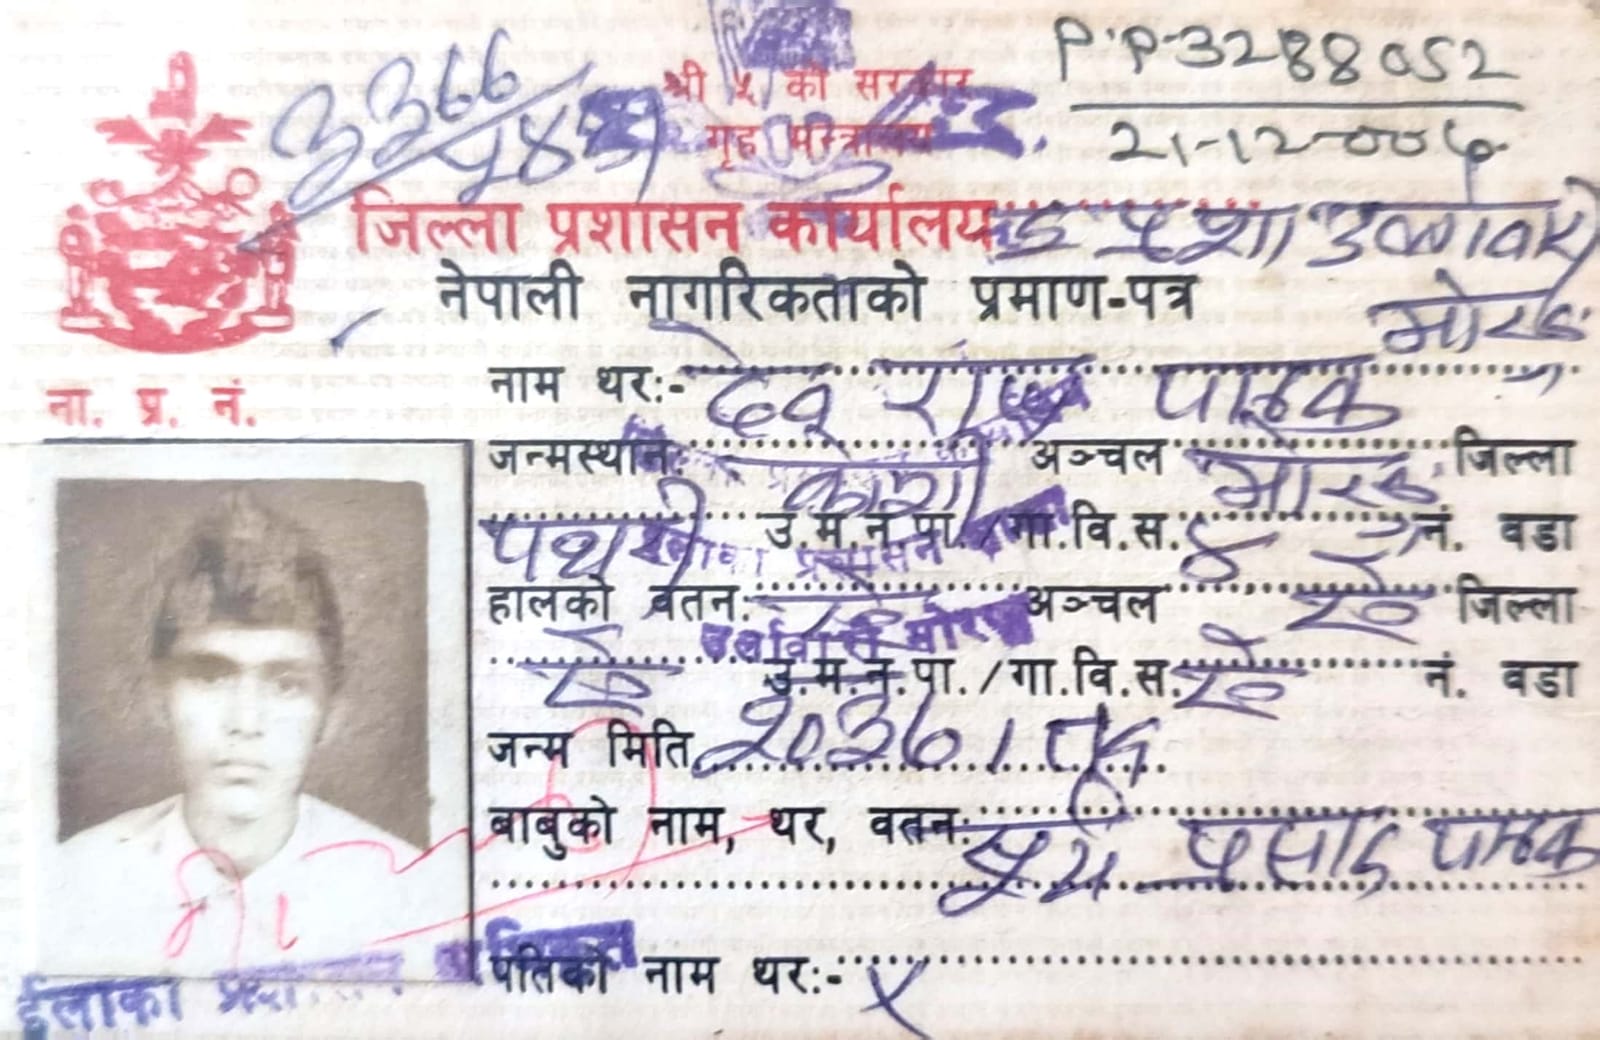 P.P.3288052
21-12-006
३३६६/५४८१
श्री ५ को सरकार
गृह मन्त्रालय
जिल्ला प्रशासन कार्यालय इ प्र शा उर्लावारी
मोरङ
नेपाली नागरिकताको प्रमाण-पत्र
ना. प्र. नं.
नाम थर:- देव राज पाठक
जन्मस्थान: कोशी अञ्चल मोरङ जिल्ला
पथरी उ.म.न.पा./गा.वि.स. ४ नं. वडा
हालको वतन: ऐ अञ्चल ऐ जिल्ला
ऐ उ.म.न.पा./गा.वि.स. ऐ नं. वडा
जन्म मिति २०३६।
बाबुको नाम, थर, वतन: सूर्य प्रसाद पाठक
पतिको नाम थर:- x
ईलाका प्रशासन
ईलाका प्रशासन
उर्लावारी मोरङ